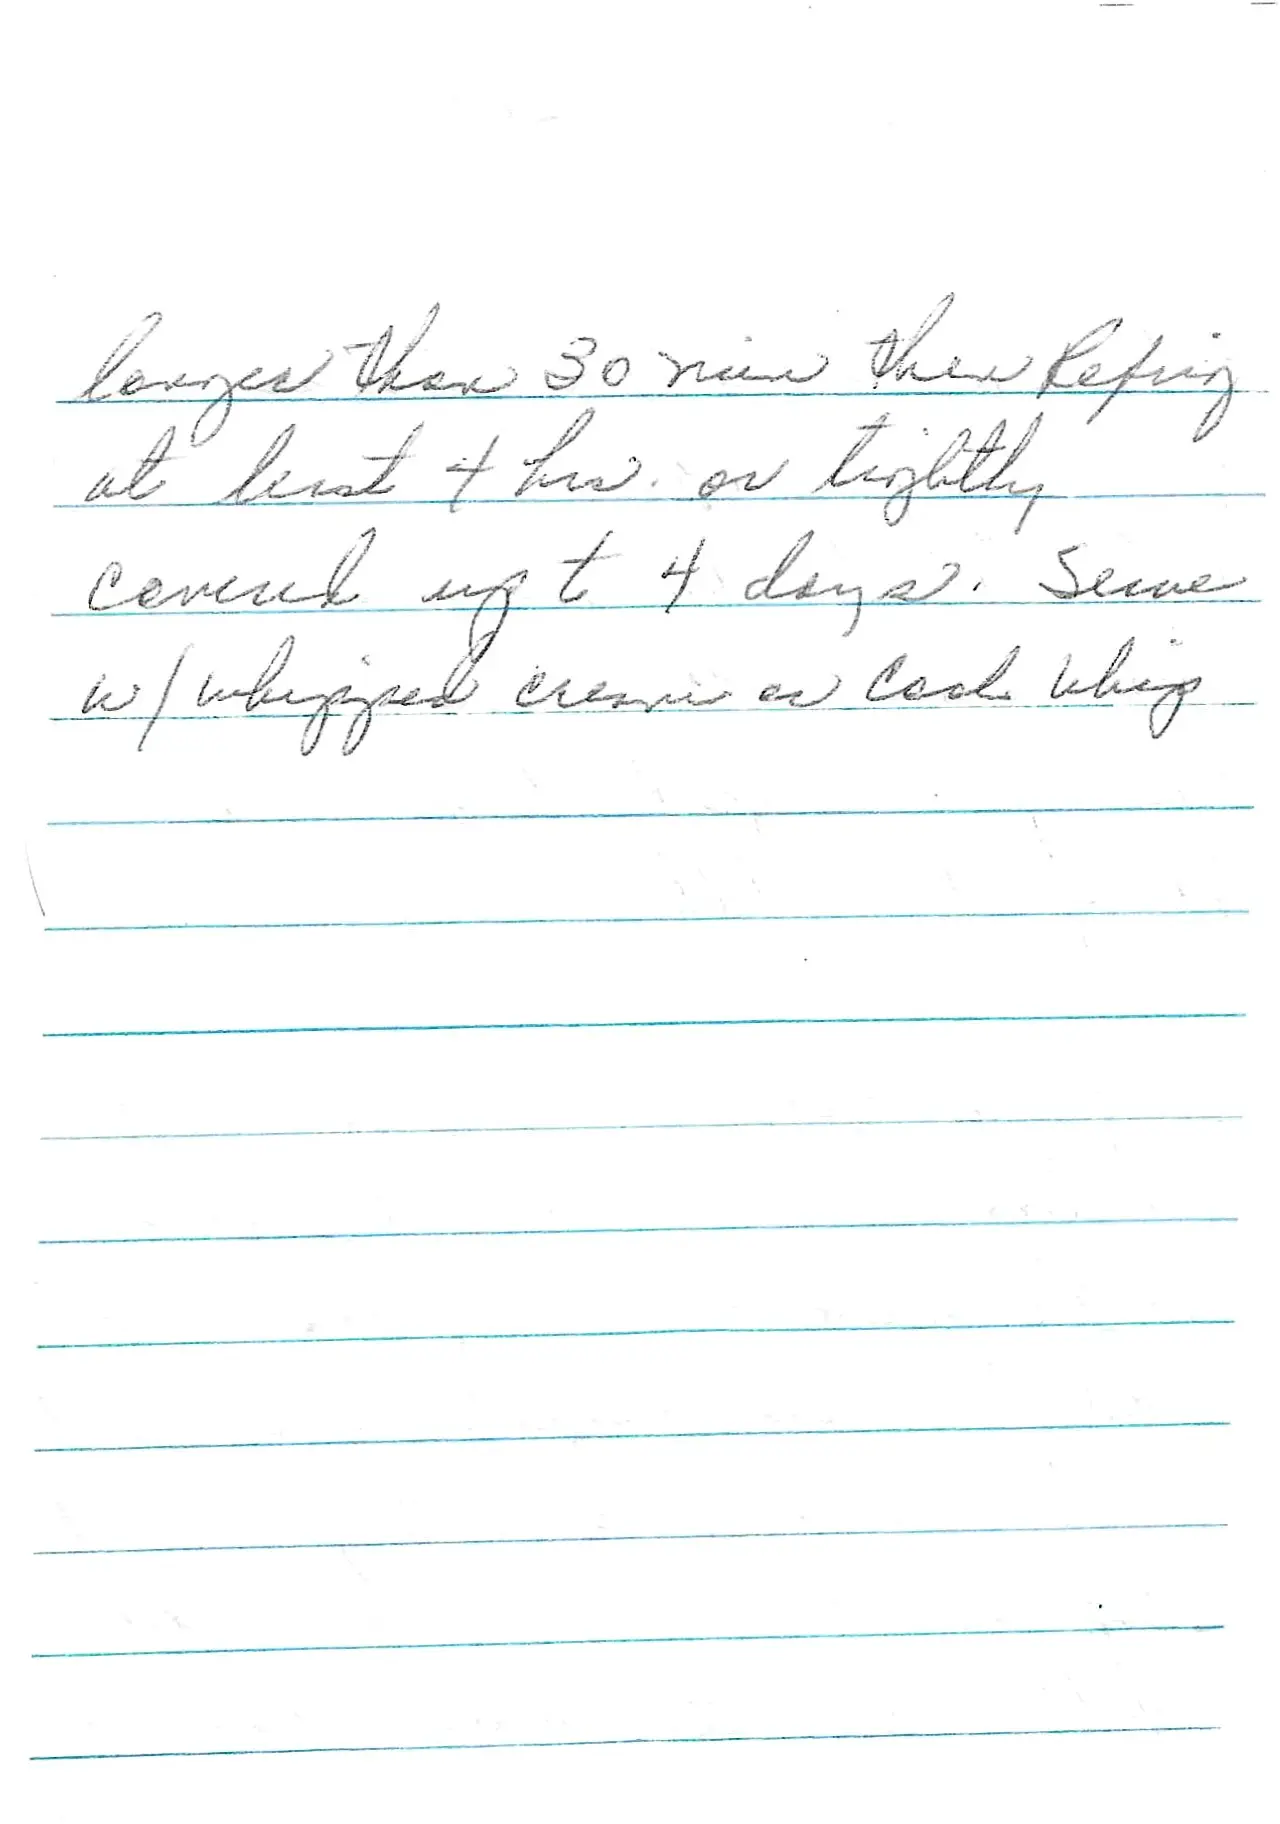 longer than 30 min then Refrig
at least 4 hrs. or tightly
covered up t 4 days. Serve
w/ whipped cream or Cool Whip